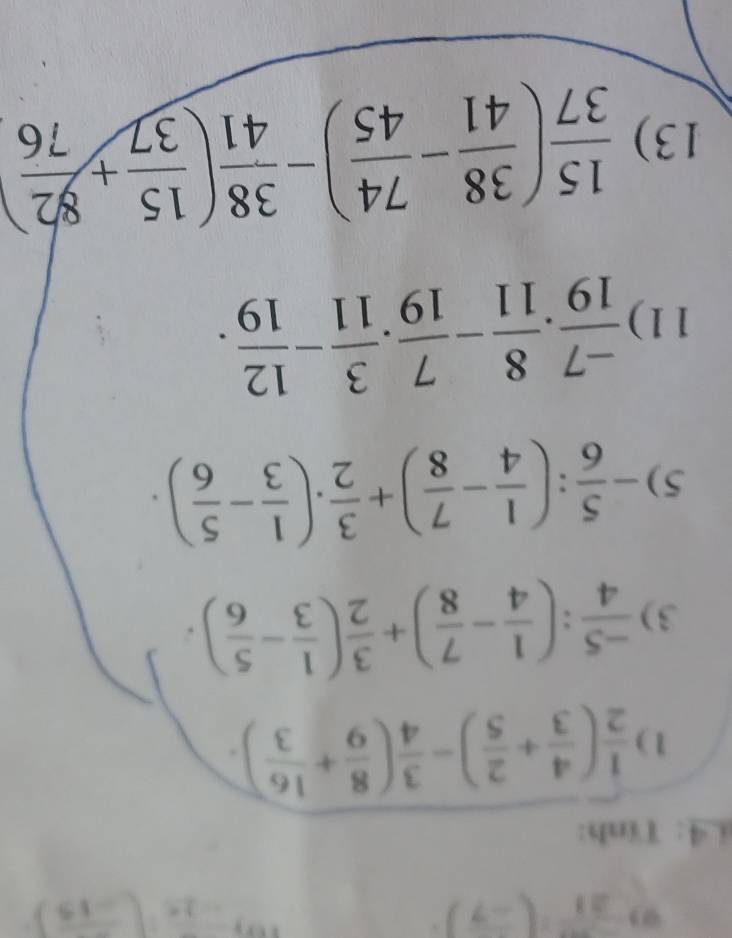 4: Tính:
1) \frac{1}{2}\left(\frac{4}{3}+\frac{2}{5}\right)-\frac{3}{4}\left(\frac{8}{9}+\frac{16}{3}\right).
3) \frac{-5}{4}:\left(\frac{1}{4}-\frac{7}{8}\right)+\frac{3}{2}\left(\frac{1}{3}-\frac{5}{6}\right).
5) -\frac{5}{6}:\left(\frac{1}{4}-\frac{7}{8}\right)+\frac{3}{2}.\left(\frac{1}{3}-\frac{5}{6}\right).
11) \frac{-7}{19}.\frac{8}{11}-\frac{7}{19}.\frac{3}{11}-\frac{12}{19}.
13) \frac{15}{37}\left(\frac{38}{41}-\frac{74}{45}\right)-\frac{38}{41}\left(\frac{15}{37}+\frac{82}{76}\right)